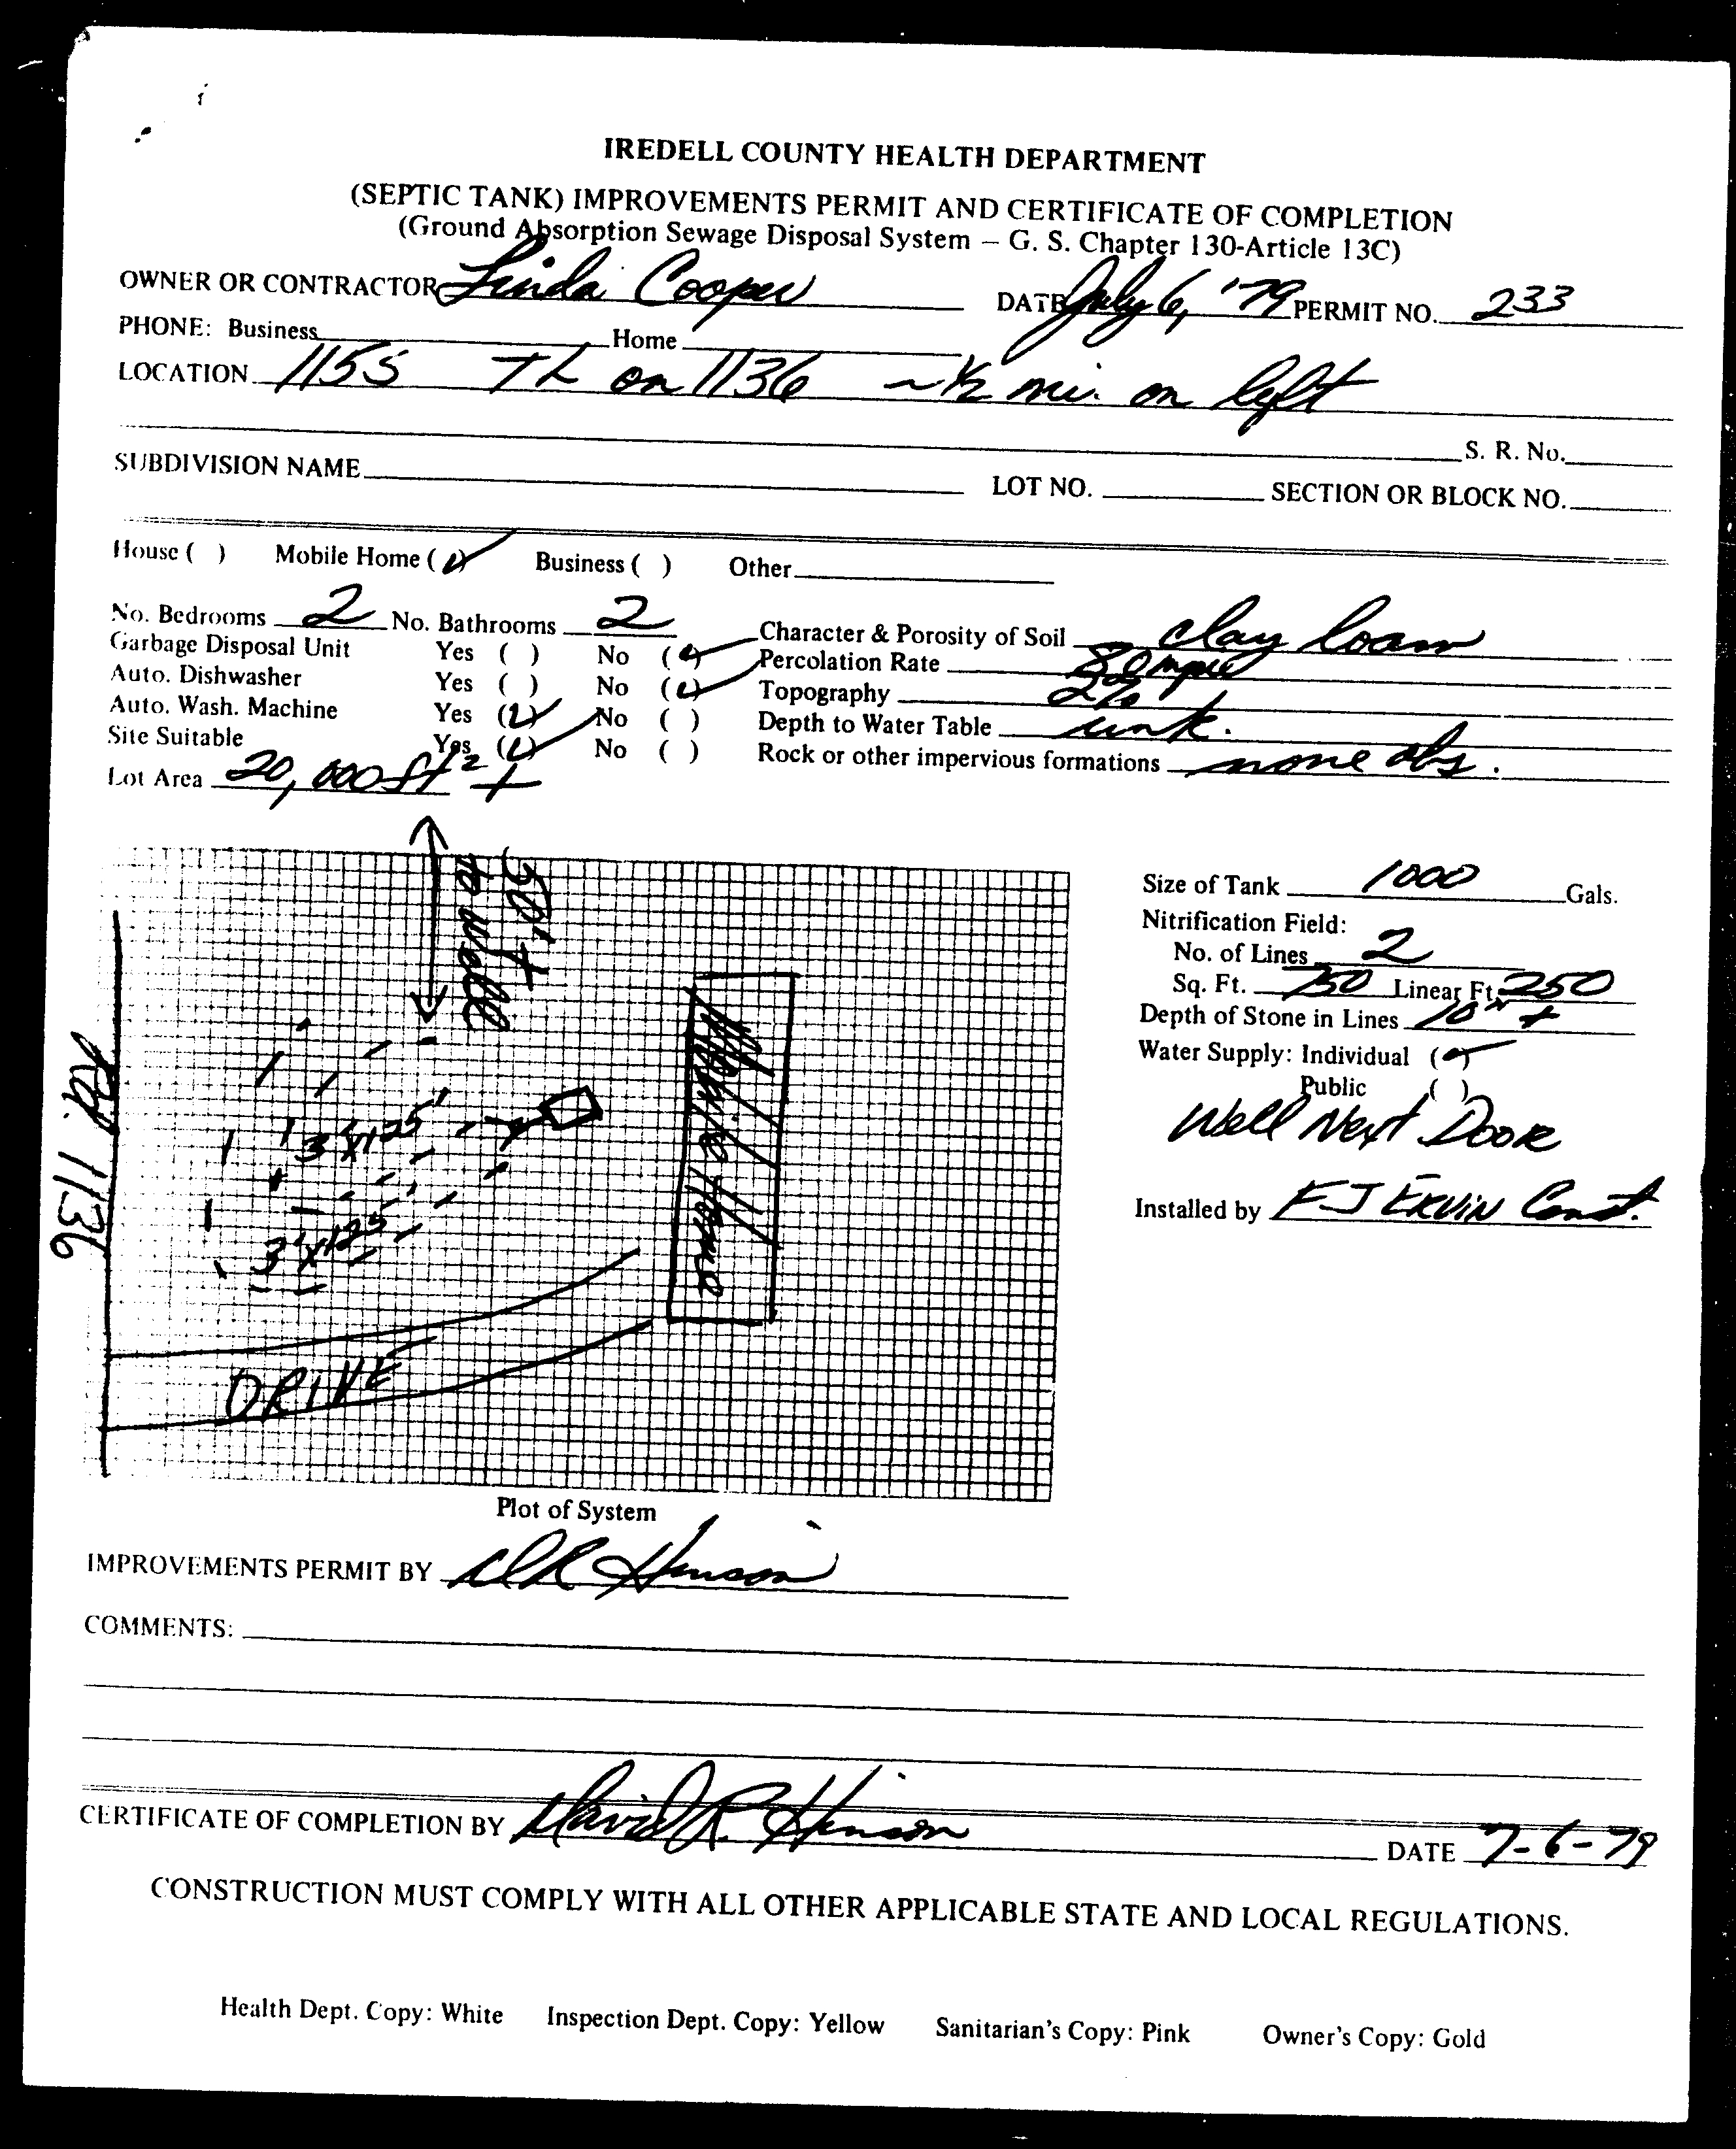 IREDELL COUNTY HEALTH DEPARTMENT
(SEPTIC TANK) IMPROVEMENTS PERMIT AND CERTIFICATE OF COMPLETION
(Ground Absorption Sewage Disposal System – G. S. Chapter 130-Article 13C)
OWNER OR CONTRACTOR Linda Cooper DATE July 6, '79 PERMIT NO. 233
PHONE: Business Home
LOCATION 1155 TL on 1136 ~ 1/2 mi. on left
S. R. No.
SUBDIVISION NAME LOT NO. SECTION OR BLOCK NO.
House ( ) Mobile Home (✓) Business ( ) Other
No. Bedrooms 2 No. Bathrooms 2
Garbage Disposal Unit Yes ( ) No (✓)
Auto. Dishwasher Yes ( ) No (✓)
Auto. Wash. Machine Yes (✓) No ( )
Site Suitable Yes (✓) No ( )
Lot Area 20,000 ft² +
Character & Porosity of Soil clay loam
Percolation Rate 80 mpi
Topography 2%
Depth to Water Table unk.
Rock or other impervious formations none obs.
50' +
to well
Rd. 1136
Mobile Home
3'x125'
3'x125'
DRIVE
Plot of System
Size of Tank 1000 Gals.
Nitrification Field:
No. of Lines 2
Sq. Ft. 750 Linear Ft. 250
Depth of Stone in Lines 10" +
Water Supply: Individual (✓)
Public ( )
Well Next Door
Installed by FJ ERVIN Const.
IMPROVEMENTS PERMIT BY DR Hinson
COMMENTS:
CERTIFICATE OF COMPLETION BY David R. Hinson DATE 7-6-79
CONSTRUCTION MUST COMPLY WITH ALL OTHER APPLICABLE STATE AND LOCAL REGULATIONS.
Health Dept. Copy: White Inspection Dept. Copy: Yellow Sanitarian's Copy: Pink Owner's Copy: Gold